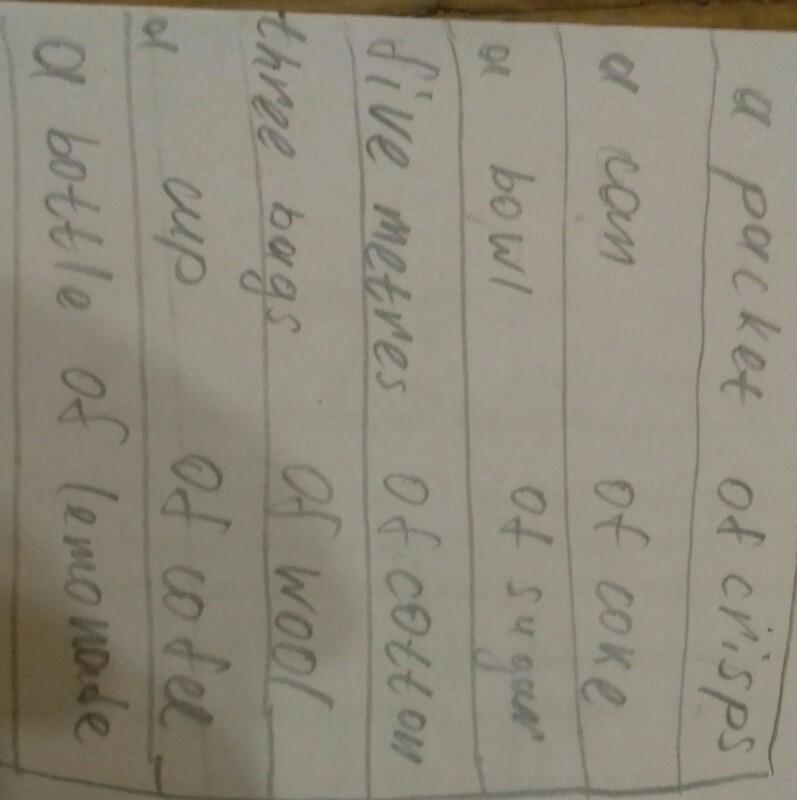 a packet of crisps
a can of coke
a bowl of sugar
five metres of cotton
three bags of wool
a cup of cofee
a bottle of lemonade